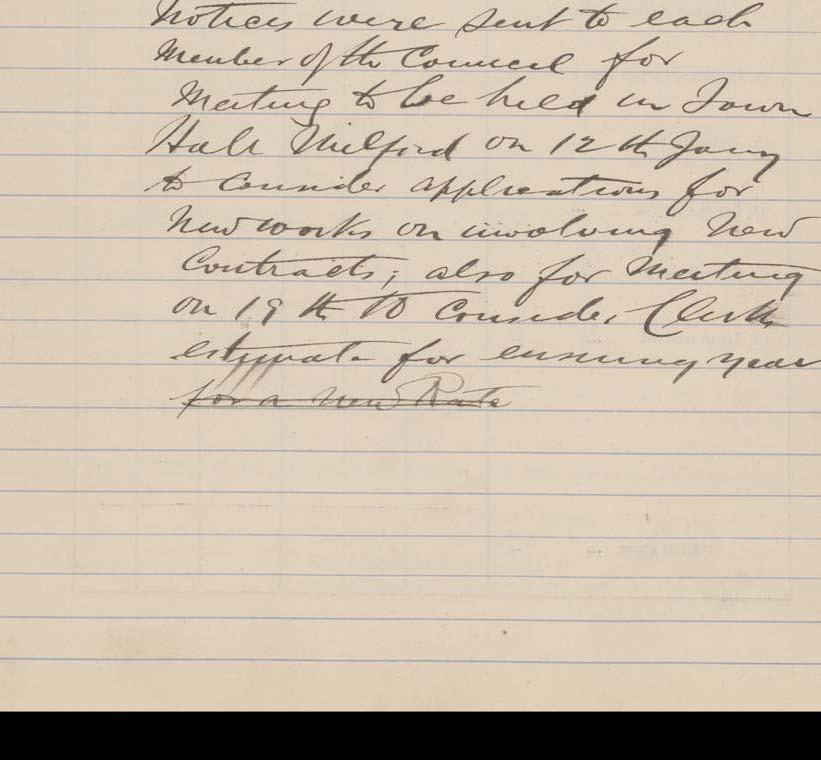 Notices were sent to each
Member of the Council for
Meeting to be held in Town
Hall Milford on 12th Jany
to consider applications for
New works or involving New
Contracts; also for Meeting
on 19th to consider Clerks
estimate for ensuing year
for a New Rate